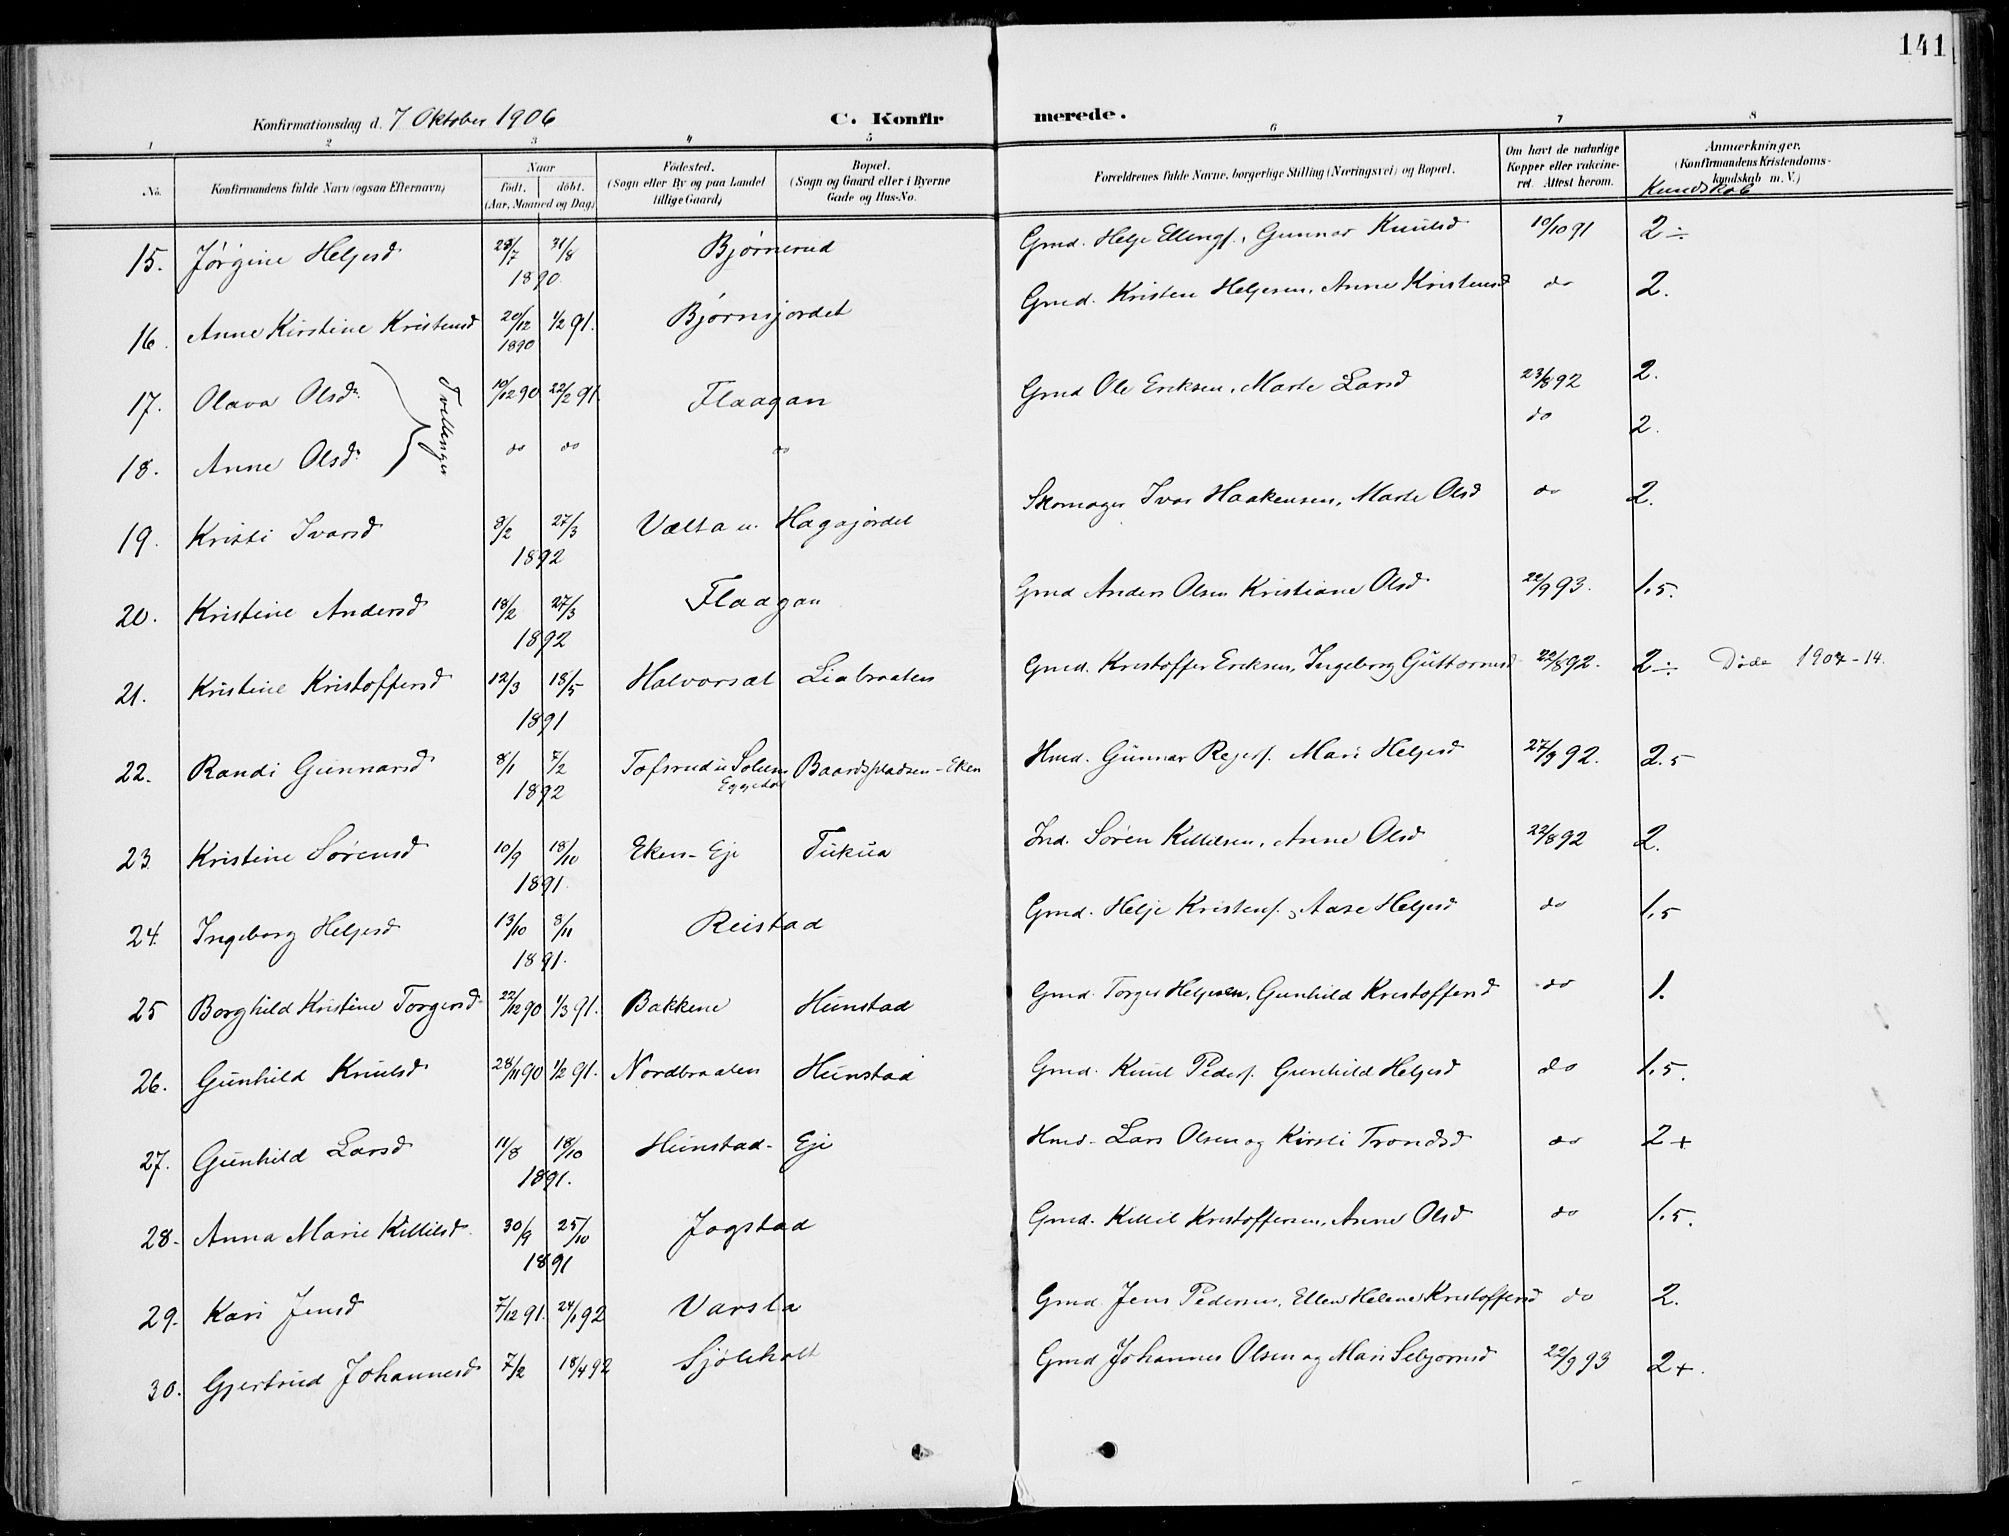 141
Konfirmationsdag d. 7 Oktober 1906
C. Konfirmerede.
1 2 3 4 5 6 7 8
No. Konfirmandens fulde Navn (ogsaa Efternavn) Naar født. døbt. (Aar, Maaned og Dag) Fødested. (Sogn eller By og paa Landet tillige Gaard) Bopæl. (Sogn og Gaard eller i Byerne Gade og Hus-No. Forældrenes fulde Navne, borgerlige Stilling (Næringsvei) og Bopæl. Om havt de naturlige Kopper eller vakcineret. Attest herom. Anmærkninger. (Konfirmandens Kristendomskundskab m. V.) Kundskab
15. Jørgine Heljesd 23/7 31/8 Bjørnerud Gmd. Helje Ellings., Gunnor Knutsd 10/10 91 2 ÷
1890.
16. Anne Kirstine Kristensd 20/12 1/2 91. Bjørnsjordet Gmd. Kristen Helgesen, Anne Kristensd do 2.
1890
17. Olava Olsd. Tvillinger 10/12 90 22/2 91. Flaagan Gmd Ole Eriksen, Marte Larsd 23/8 92 2.
18. Anne Olsd. do do do do 2.
19. Kristi Ivarsd 8/2 27/3 Vælta u. Hagajordet Skomager Ivar Haakensen, Marte Olsd do 2.
1892
20. Kristine Andersd 18/2 27/3 Flaagan Gmd Anders Olsen Kristiane Olsd 22/9 93. 1.5.
1892
21. Kristine Kristoffersd 12/3 18/5 Halvorsæt Liabraaten Gmd. Kristoffer Eriksen, Ingeborg Guttormsd 22/8 92. 2 ÷ Døde 1907-14.
1891
22. Randi Gunnarsd 8/1 7/2 Tofsrud u Solem Eggedal Baardspladsen - Eken Hmd. Gunnar Regers. Mari Heljesd 27/9 92. 2.5
1892
23. Kristine Sørensd 10/9 18/10 Eken - Eje Tukua Ind. Søren Killilsen, Anne Olsd 22/8 92 2.
1891.
24. Ingeborg Heljesd 13/10 8/11 Reistad Gmd. Helje Kristens., Aase Heljesd do 1.5
1891.
25 Borghild Kristine Torgersd 22/12 90 1/3 91. Bakkene Hunstad Gmd. Torger Helgesen, Gunhild Kristoffersd do 1.
26. Gunhild Knutsd 28/11 90 1/2 91. Nordbraaten Hunstad Gmd. Knut Peders. Gunhild Heljesd do 1.5.
27. Gunhild Larsd 11/8 18/10 Hunstad - Eje Hmd - Lars Olsen og Kirsti Trondsd do 2+
1891.
28. Anna Marie Killilsd 30/9 25/10 Jogstad Gmd. Killil Kristoffersen, Anne Olsd do 1.5.
1891
29. Kari Jensd 7/12 91. 24/1 92 Varsla Gmd. Jens Pedersen, Ellen Helene Kristoffersd do 2.
30. Gjertrud Johannesd 7/2 18/4 92 Sjøleholt Gmd Johannes Olsen og Mari Sebjørnsd 22/9 93 2+.